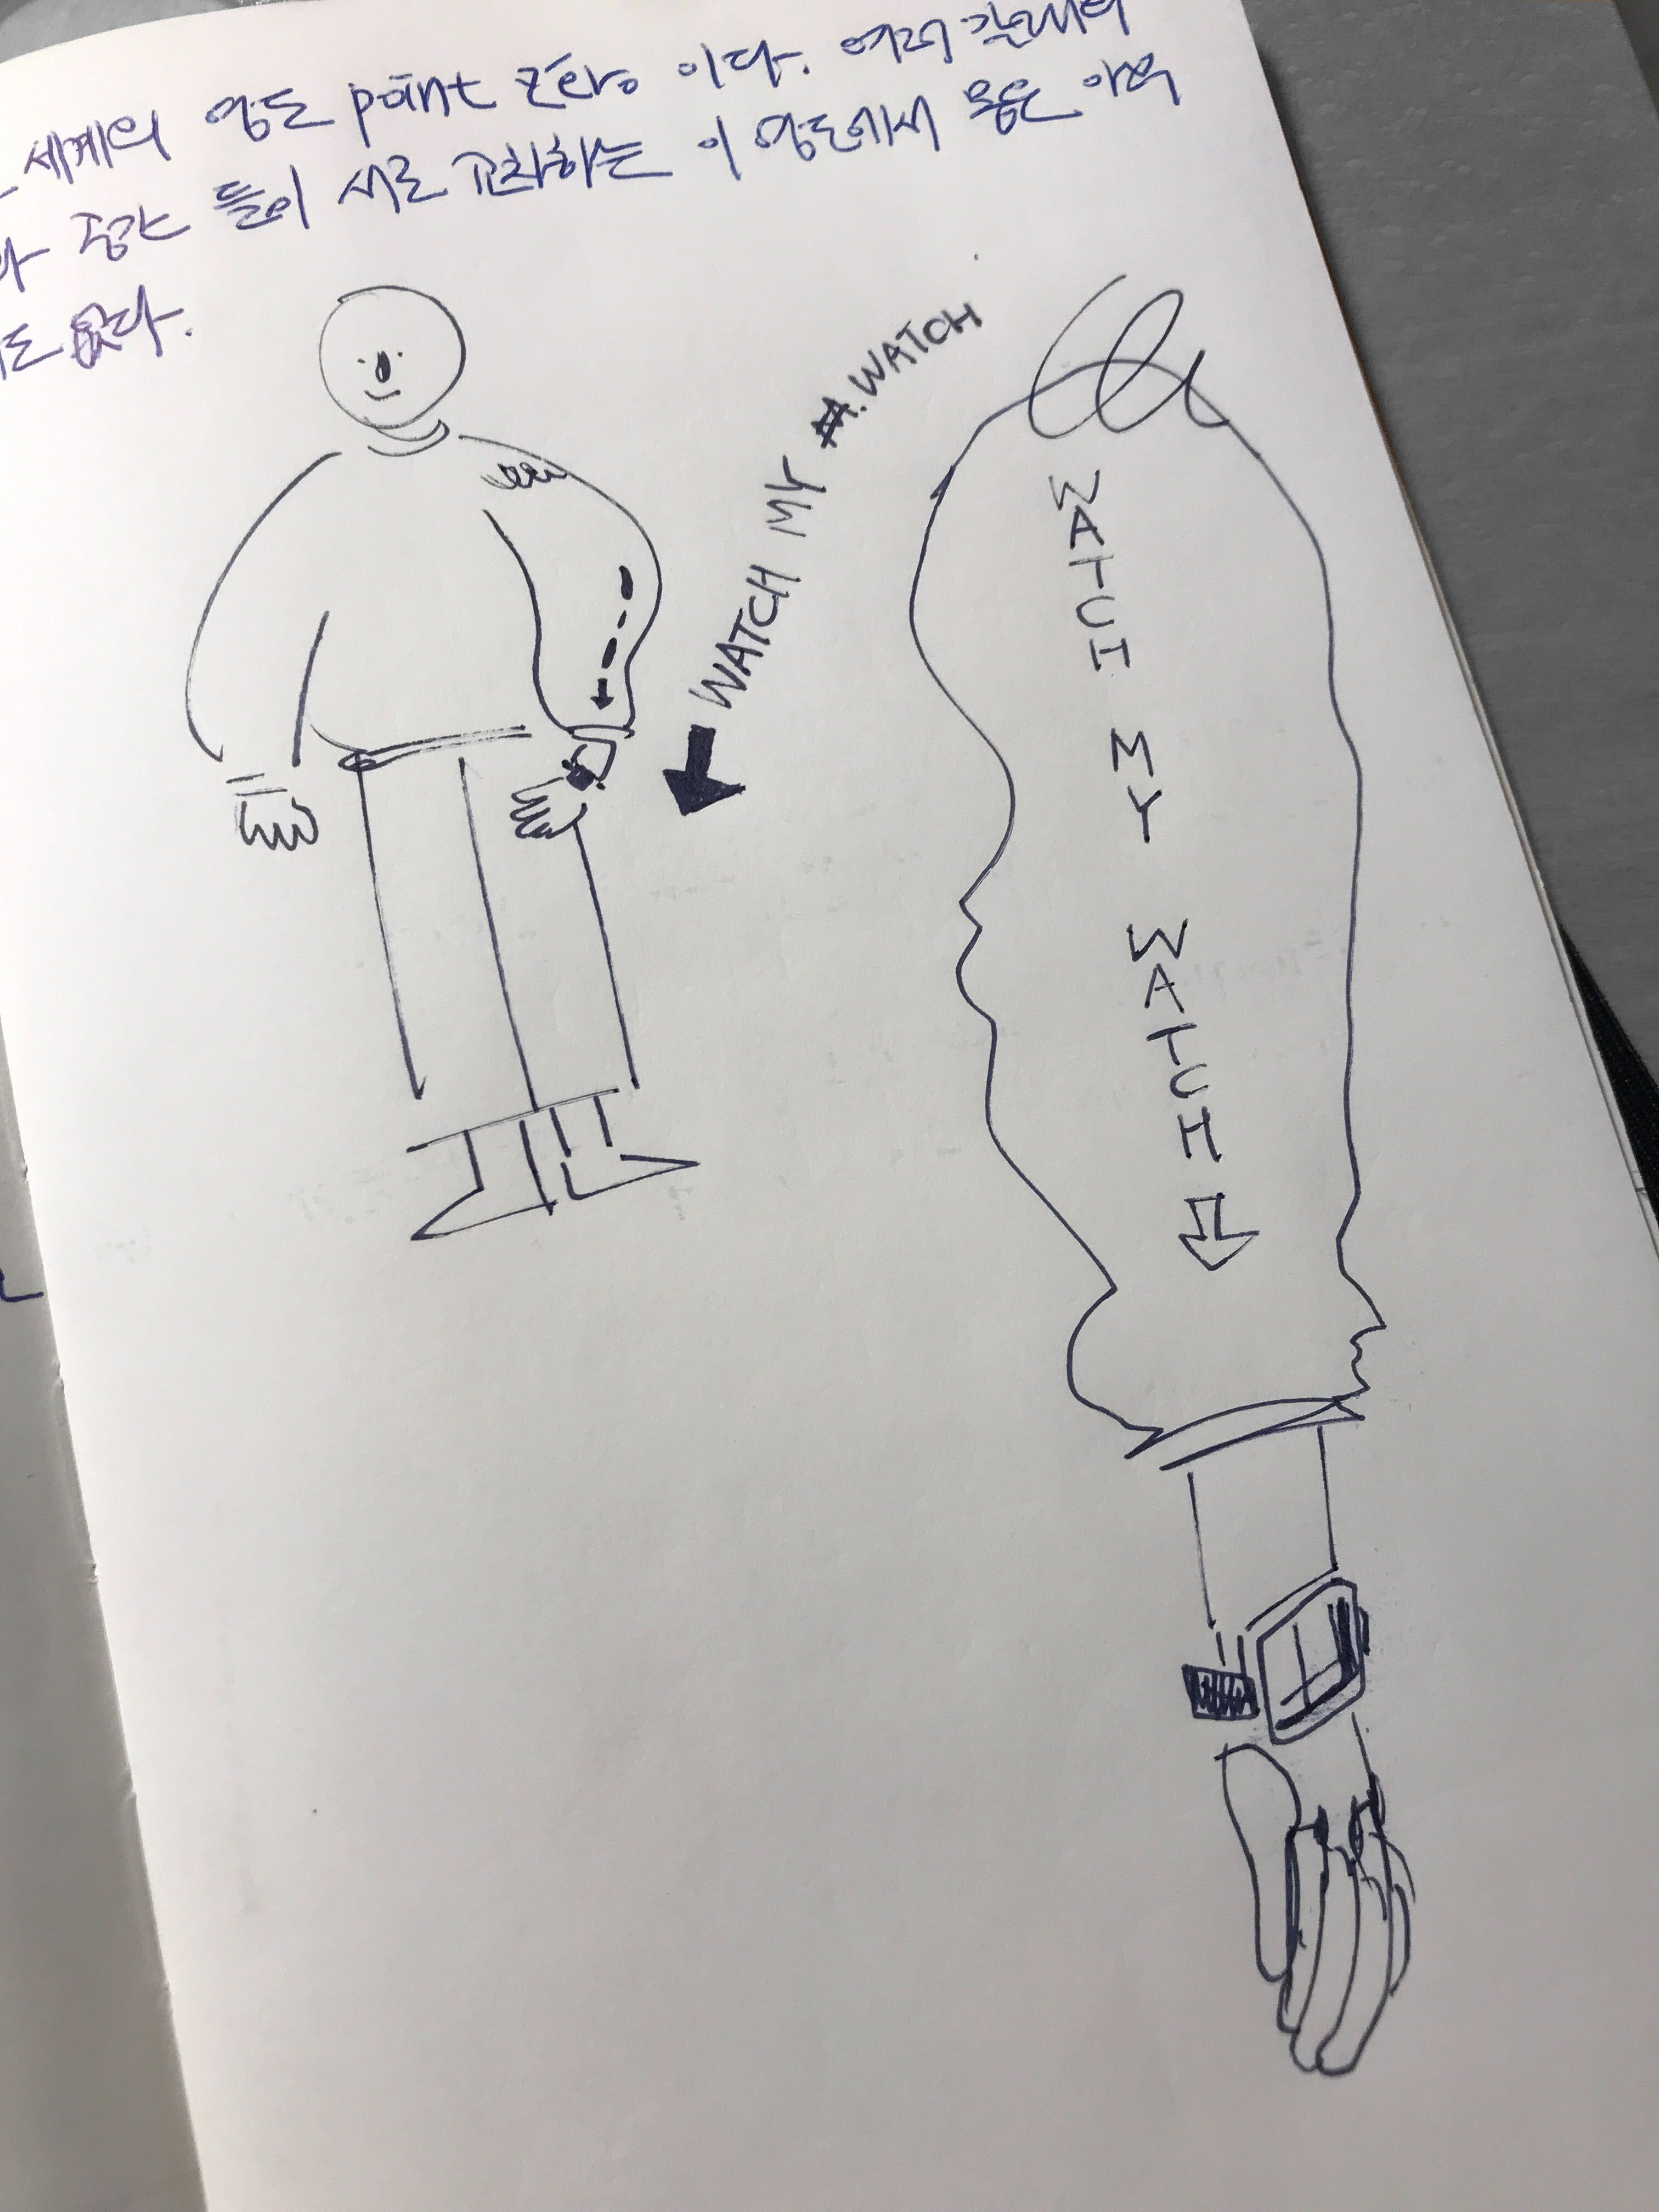 세계의 영도 point zéro 이다. 여러 갈래의
공간 들이 서로 교차하는 이 영도에서 몸은 아무
도 없다.
WATCH MY A.WATCH
WATCH MY WATCH